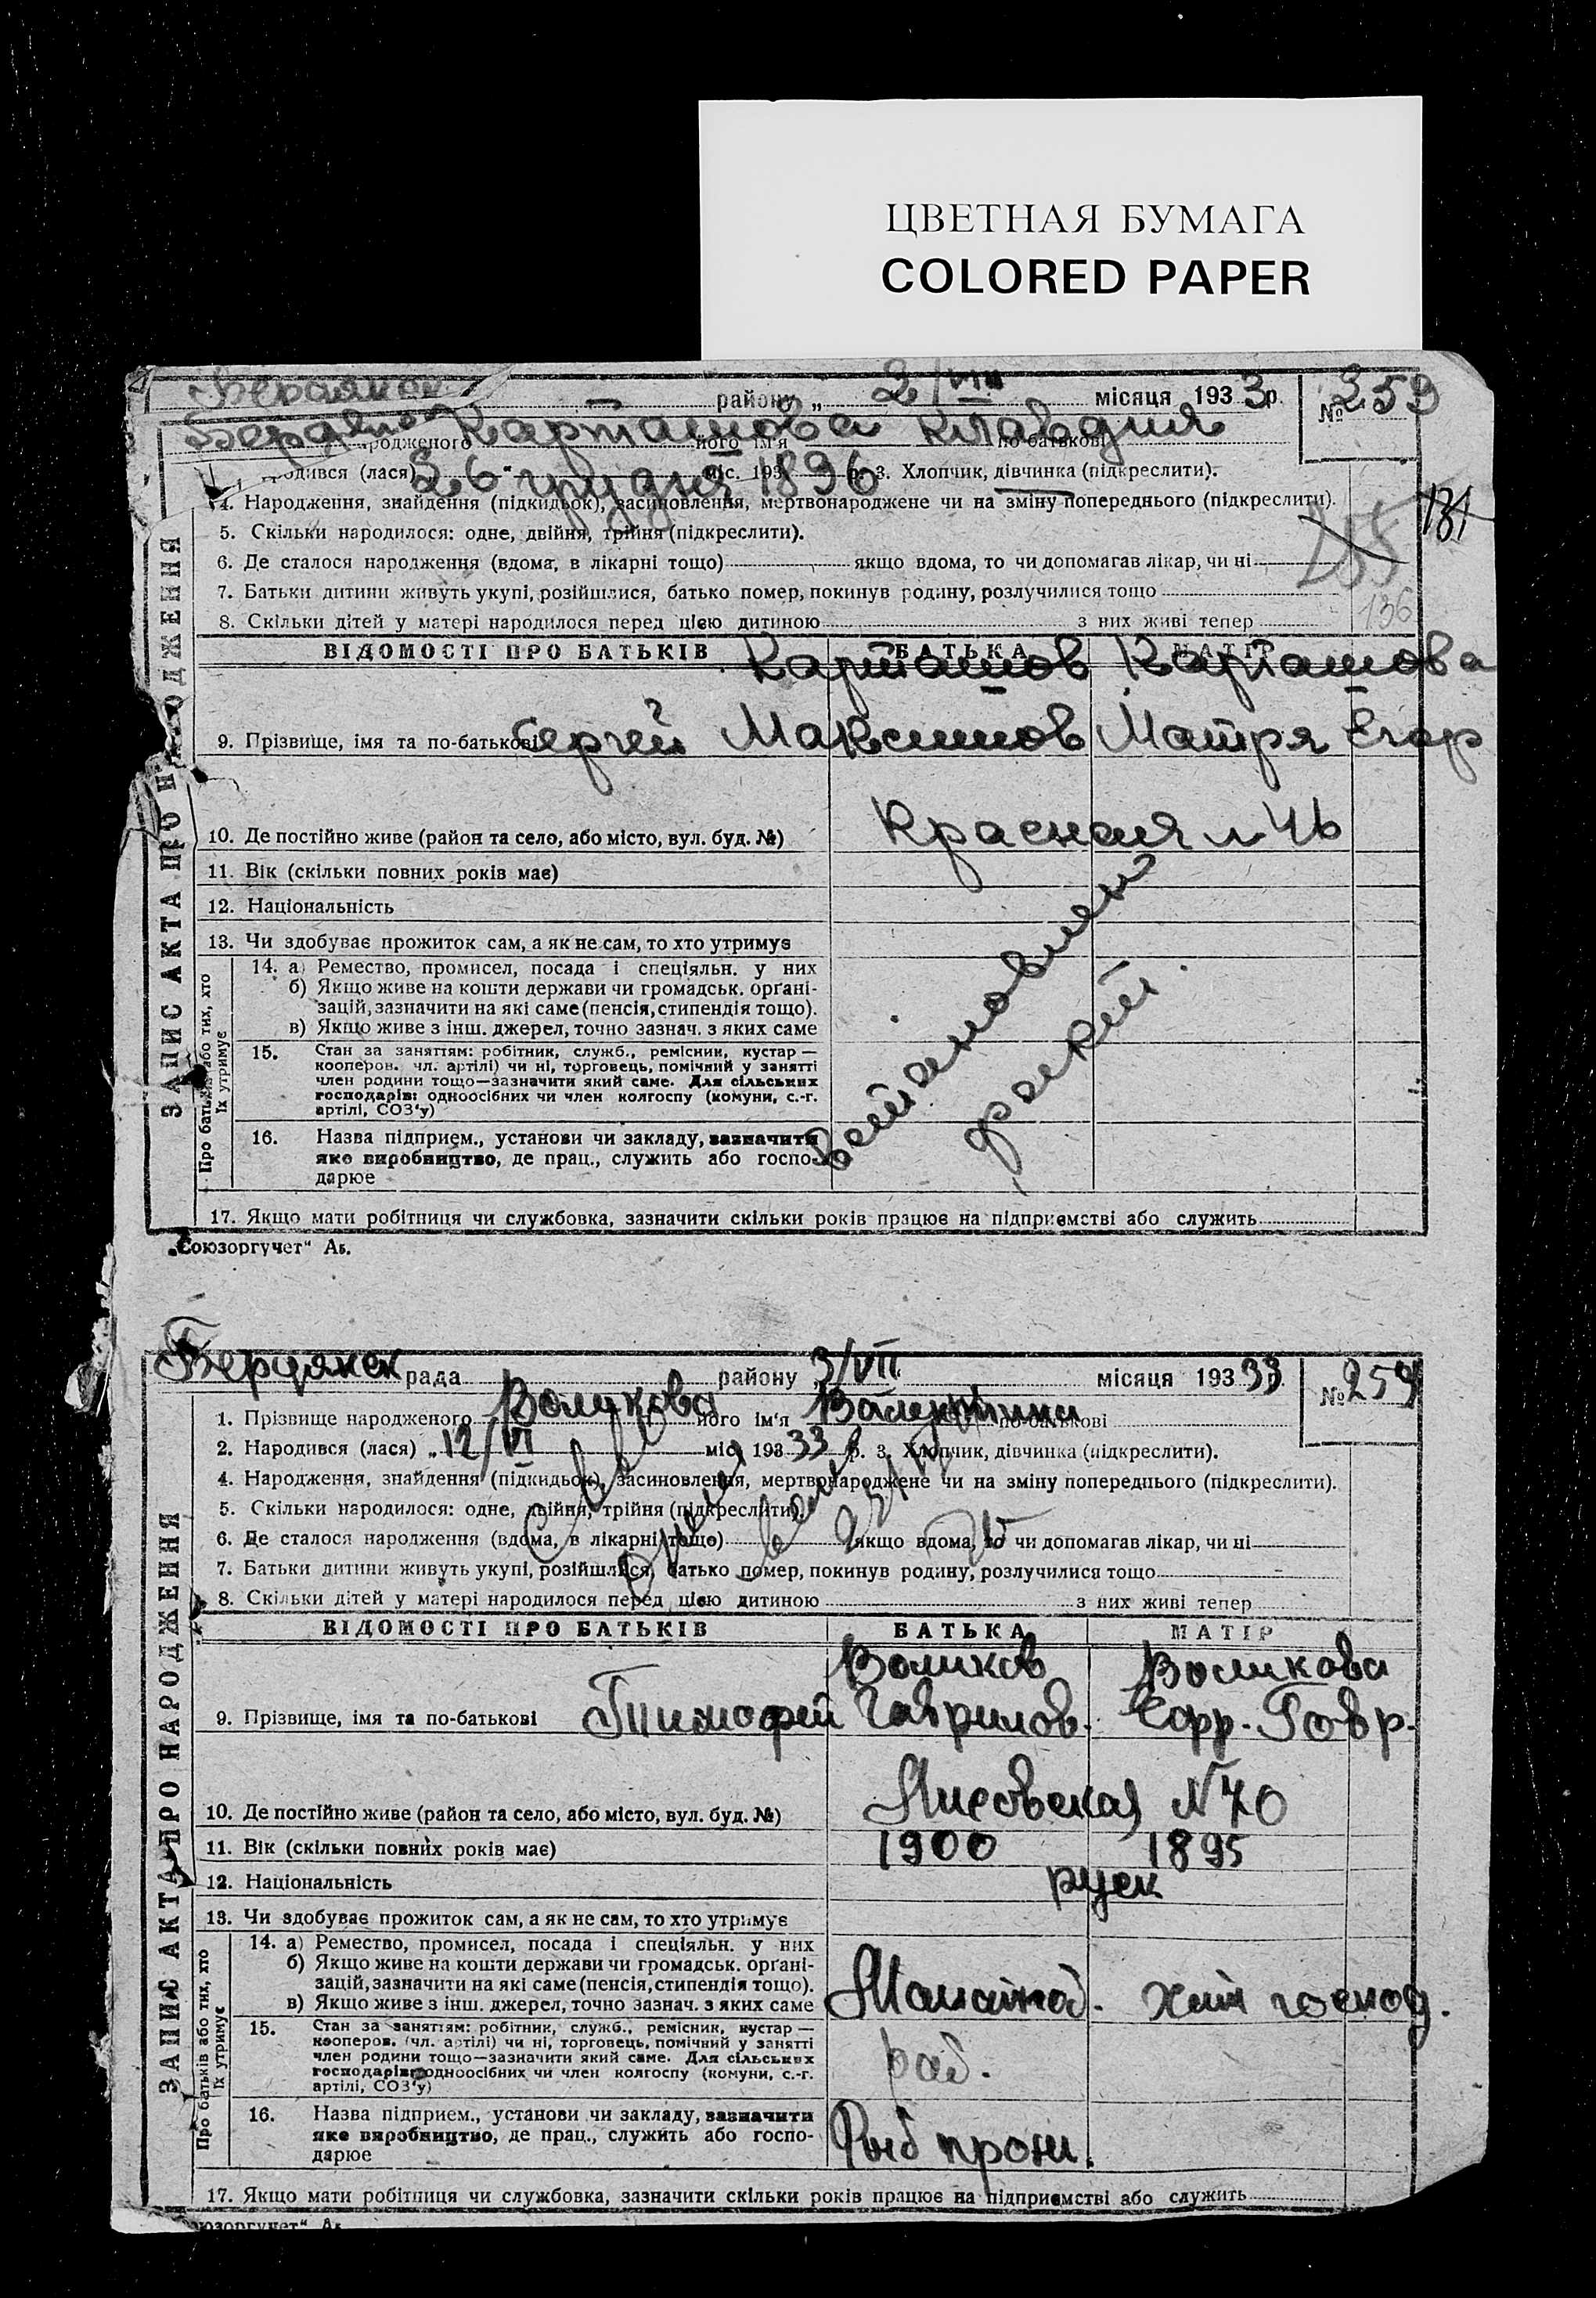 ЦВЕТНАЯ БУМАГА
COLORED PAPER
району „ 2/VIII місяця 1933 р. № 259
родженого Карташова його ім'я Клавдия по-батькові
родився (лася) 26 грудня міс. 193 1896 р. 3. Хлопчик, дівчинка (підкреслити).
4. Народження, знайдення (підкидьок), засиновлення, мертвонароджене чи на зміну попереднього (підкреслити).
131
5. Скільки народилося: одне, двійня, трійня (підкреслити).
6. Де сталося народження (вдома, в лікарні тощо) якщо вдома, то чи допомагав лікар, чи ні
7. Батьки дитини живуть укупі, розійшлися, батько помер, покинув родину, розлучилися тощо
136
8. Скільки дітей у матері народилося перед цією дитиною з них живі тепер
ВІДОМОСТІ ПРО БАТЬКІВ БАТЬКА МАТІР
Карташов Карташова
9. Прізвище, імя та по-батькові Сергей Максимов Матря Егор
10. Де постійно живе (район та село, або місто, вул. буд. №) Красная 46
11. Вік (скільки повних років має)
12. Національність
13. Чи здобуває прожиток сам, а як не сам, то хто утримує
14. а) Ремество, промисел, посада і спеціяльн. у них
б) Якщо живе на кошти держави чи громадськ. орґані-
зацій, зазначити на які саме (пенсія, стипендія тощо).
в) Якщо живе з інш. джерел, точно зазнач. з яких саме
15. Стан за заняттям: робітник, служб., ремісник, кустар —
кооперов. чл. артілі) чи ні, торговець, помічний у занятті
член родини тощо—зазначити який саме. Для сільських
господарів: одноосібних чи член колгоспу (комуни, с.-г.
артілі, СОЗ'у)
16. Назва підприєм., установи чи закладу, зазначити
яке виробництво, де прац., служить або госпо-
дарює
17. Якщо мати робітниця чи службовка, зазначити скільки років працює на підприємстві або служить
ЗАПИС АКТА ПРО НАРОДЖЕННЯ
Про батьків або тих, хто
їх утримує
„Союзоргучет“ Аб.
Берцянск рада району 3/VII місяця 193 33 № 259
1. Прізвище народженого Воликова його ім'я Валентина по-батькові
2. Народився (лася) „12/VI міс. 193 33 р. 3. Хлопчик, дівчинка (підкреслити).
4. Народження, знайдення (підкидьок), засиновлення, мертвонароджене чи на зміну попереднього (підкреслити).
5. Скільки народилося: одне, двійня, трійня (підкреслити).
6. Де сталося народження (вдома, в лікарні тощо) якщо вдома, то чи допомагав лікар, чи ні
7. Батьки дитини живуть укупі, розійшлися, батько помер, покинув родину, розлучилися тощо
8. Скільки дітей у матері народилося перед цією дитиною з них живі тепер
ВІДОМОСТІ ПРО БАТЬКІВ БАТЬКА МАТІР
Воликов Воликова
9. Прізвище, імя та по-батькові Тимофей Гаврилов. Ефр. Гавр.
10. Де постійно живе (район та село, або місто, вул. буд. №) Лисовская N 70
11. Вік (скільки повних років має) 1900 1895
12. Національність руск
13. Чи здобуває прожиток сам, а як не сам, то хто утримує
14. а) Ремество, промисел, посада і спеціяльн. у них
б) Якщо живе на кошти держави чи громадськ. орґані-
зацій, зазначити на які саме (пенсія, стипендія тощо).
в) Якщо живе з інш. джерел, точно зазнач. з яких саме господ.
15. Стан за заняттям: робітник, служб., ремісник, кустар —
кооперов. (чл. артілі) чи ні, торговець, помічний у занятті
член родини тощо—зазначити який саме. Для сільських
господарів: одноосібних чи член колгоспу (комуни, с.-г.
артілі, СОЗ'у)
раб.
16. Назва підприєм., установи чи закладу, зазначити
яке виробництво, де прац., служить або госпо-
дарює
Рыб пром.
17. Якщо мати робітниця чи службовка, зазначити скільки років працює на підприємстві або служить
ЗАПИС АКТА ПРО НАРОДЖЕННЯ
Про батьків або тих, хто
їх утримує